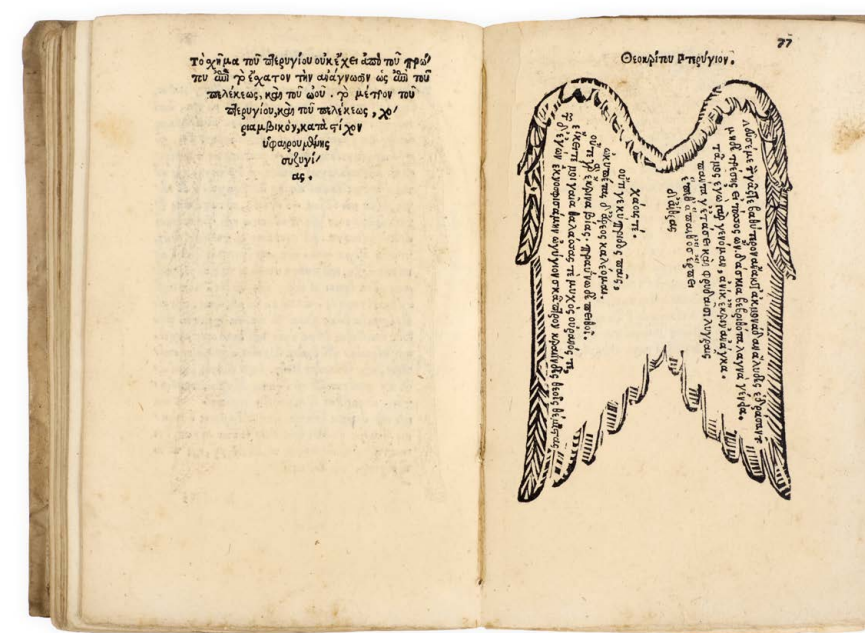 Τὸ χῆμα τοῦ πτερυγίου οὐκ ἔχει ἀπὸ τοῦ πρώ/
του ἐπὶ τὸ ἔχατον τὴν ἀνάγνωσιν ὡς ἐπὶ τοῦ
πελέκεως, καὶ τοῦ ὠοῦ. τὸ μέτρον τοῦ
πτερυγίου, καὶ τοῦ πελέκεως, χο/
ριαμβικὸν, κατὰ στίχον
ὑφαιρουμένης
συζυγί/
ας.
77
Θεοκρίτου Πτερύγιον.
λεῦσέ με τὸν γᾶς τε βαθυστέρνου ἄνακτ' ἀκμονίδαν ἄλλυδις ἑδράσαντα
μηδὲ τρέσης εἰ τόσος ὢν, δάσκια βέβριθα λάχνα γένεια.
τᾶμος ἐγὼ γὰρ γενόμαν, ἁνίκ' ἔκραιν' ἀνάγκα.
πάντα γ καὶ φραδαῖσι λυγραῖς
ἑρπετὰ ἕρπει
δι' αἴθρας
χάους τέ.
οὔτι γε κύπριδος παῖς,
ὠκυπέτας δ' ἄρεος καλεῦμαι.
οὔτι γὰρ ἔκρινα βίας. πραΰνω δὲ πειθοῖ.
εἶκέ τέ μοι γαῖα θαλάσσας τὲ μυχὸς οὐρανός τε,
τῶν δ' ἐγὼν ἐκνοσφισάμην ὠγύγιον σκᾶπτρον θεοῖς θέμιστας